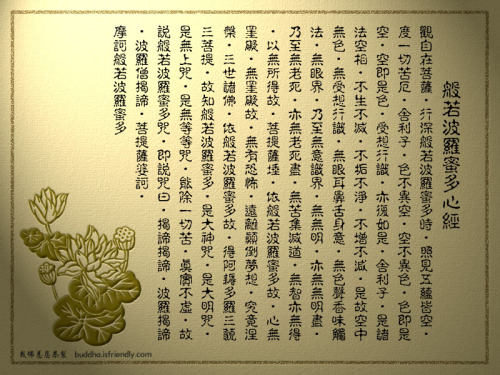 般若波羅蜜多心經
觀自在菩薩·行深般若波羅蜜多時·照見五蘊皆空·
度一切苦厄·舍利子·色不異空·空不異色·色即是
空·空即是色·受想行識·亦復如是·舍利子·是諸
法空相·不生不滅·不垢不淨·不增不減·是故空中
無色·無受想行識·無眼耳鼻舌身意·無色聲香味觸
法·無眼界·乃至無意識界·無無明·亦無無明盡·
乃至無老死·亦無老死盡·無苦集滅道·無智亦無得
·以無所得故·菩提薩埵·依般若波羅蜜多故·心無
罣礙·無罣礙故·無有恐怖·遠離顛倒夢想·究竟涅
槃·三世諸佛·依般若波羅蜜多故·得阿耨多羅三藐
三菩提·故知般若波羅蜜多·是大神咒·是大明咒·
是無上咒·是無等等咒·能除一切苦·真實不虛·故
說般若波羅蜜多咒·即說咒曰·揭諦揭諦·波羅揭諦
·波羅僧揭諦·菩提薩婆訶·
摩訶般若波羅蜜多
buddha.isfriendly.com